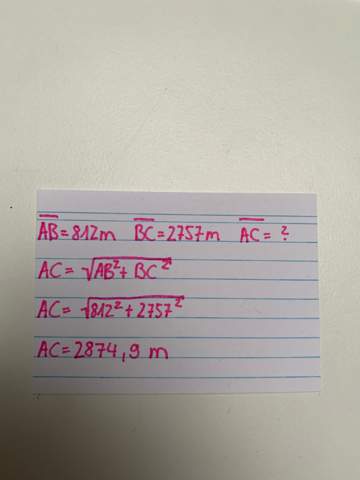 A̅B̅=812m B̅C̅=2757m A̅C̅= ?
AC= √AB²+ BC²
AC= √812²+2757²
AC=2874,9 m